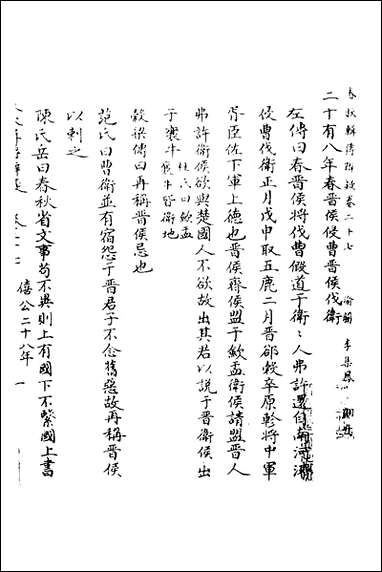 春秋輯傳辨疑卷二十七
渝蘭 李集鳳
二十有八年春晉侯侵曹晉侯伐衛
左傳曰春晉侯將伐曹假道于衛衛人弗許還自南河濟
侵曹伐衛正月戊申取五鹿二月晉郤縠卒原軫將中軍
胥臣佐下軍上德也晉侯齊侯盟于歛盂衛侯請盟晉人
弗許衛侯欲與楚國人不欲故出其君以說于晉衛侯出
于襄牛 杜氏曰歛盂襄牛皆衛地
穀梁傳曰再稱晉侯忌也
范氏曰曹衛並有宿怨于晉君子不念舊惡故再稱晉侯
以刺之
陳氏岳曰春秋省文事苟不異則上有國下不繫國上書
僖公二十八年 一